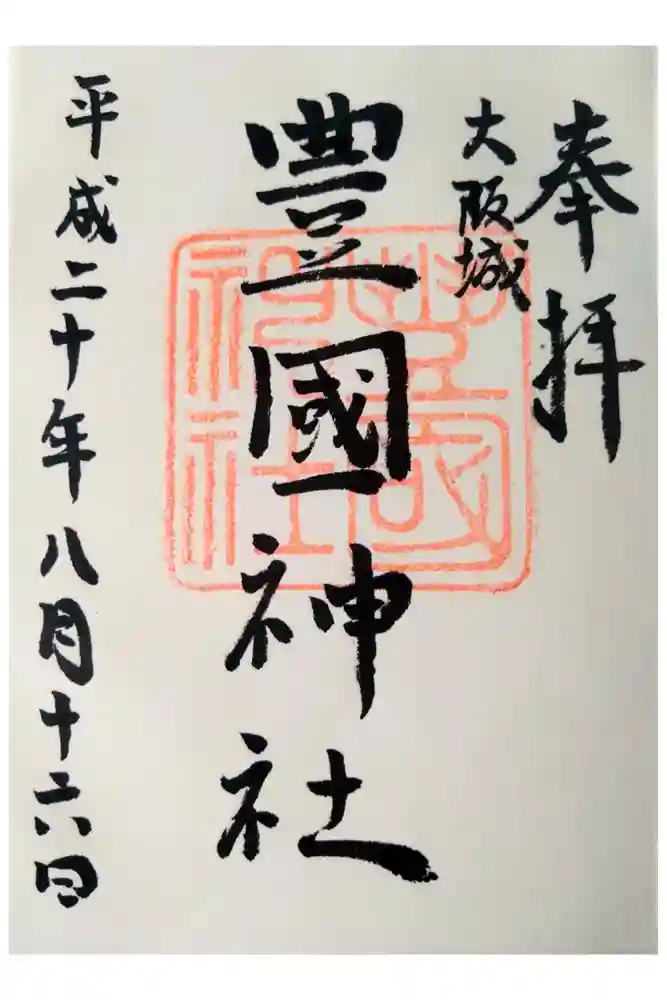 奉拝
大阪城
豊國神社
豊國神社
平成二十年八月十六日